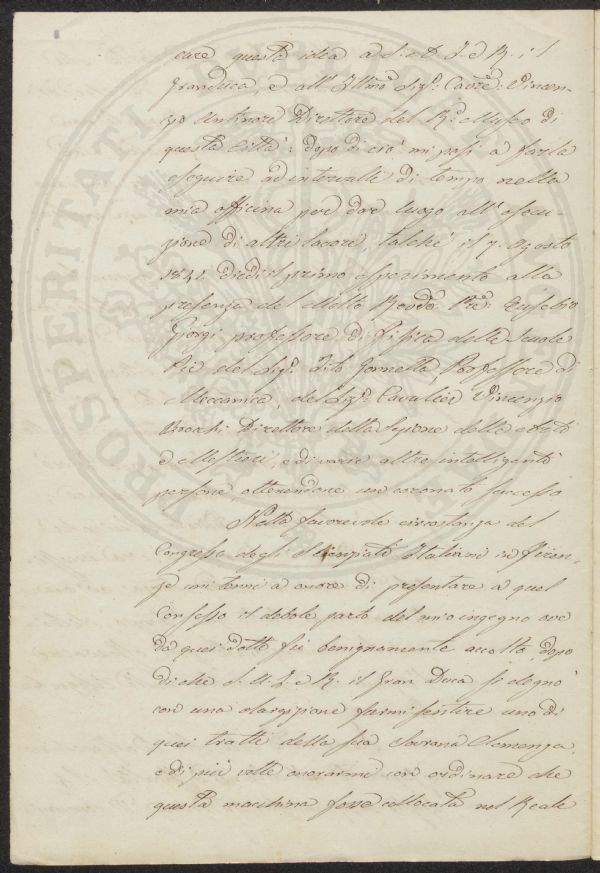 care questa idea a S. A. I. e R. il
Granduca, e all' Illmo Sigr. Cavre. Vincen-
zo Antinori Direttore del R. Museo di
questa Città: dopo di ciò mi posi a farla
eseguire ad intervalli di tempo nella
mia officina per dar luogo all' esecu-
zione di altri lavori, talché il 7. Agosto
1841 diedi il primo esperimento alla
presenza del Molto Revdo. Pre. Eusebio
Giorgi professore di Fisica delle Scuole
Pie del Sigr. Tito Gonnella, Professore di
Meccanica, del Sigr. Cavalier Vincenzio
Direttore della sezione delle Arti
e Mestieri, e di varie altre intelligenti
persone ottenendone un coronato successo
Nella favorevole circostanza del
Congresso degli Scienziati Italiani in Firen-
ze mi tenni a onore di presentare a quel
Consesso il debole parto del mio ingegno ove
da quei dotti fù benignamente accolto, dopo
di che S. A. I. e R. il Gran Duca si degnò
con una elargizione farmi sentire uno di
quei tratti della sua Sovrana Clemenza,
e di più volle onorarmi con ordinare che
questa macchina fosse collocata nel Reale
PROSPERITATI PUBLICAE